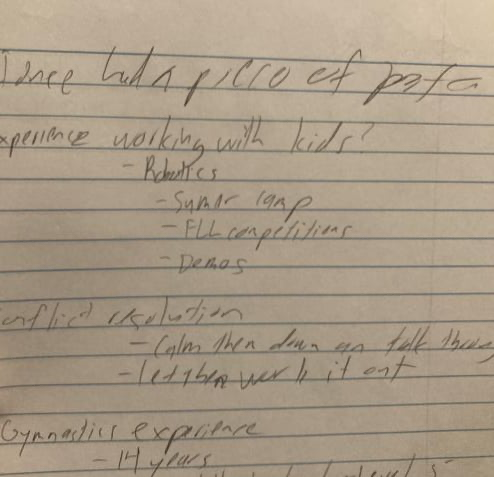 I once had a piece of pasta
xperience working with kids?
- Robotics
- Sumar camp
- FLL competitions
- Demos
onflict resolution
- Calm then down an talk
- let them work it out
Gymnastics experience
- 14 years